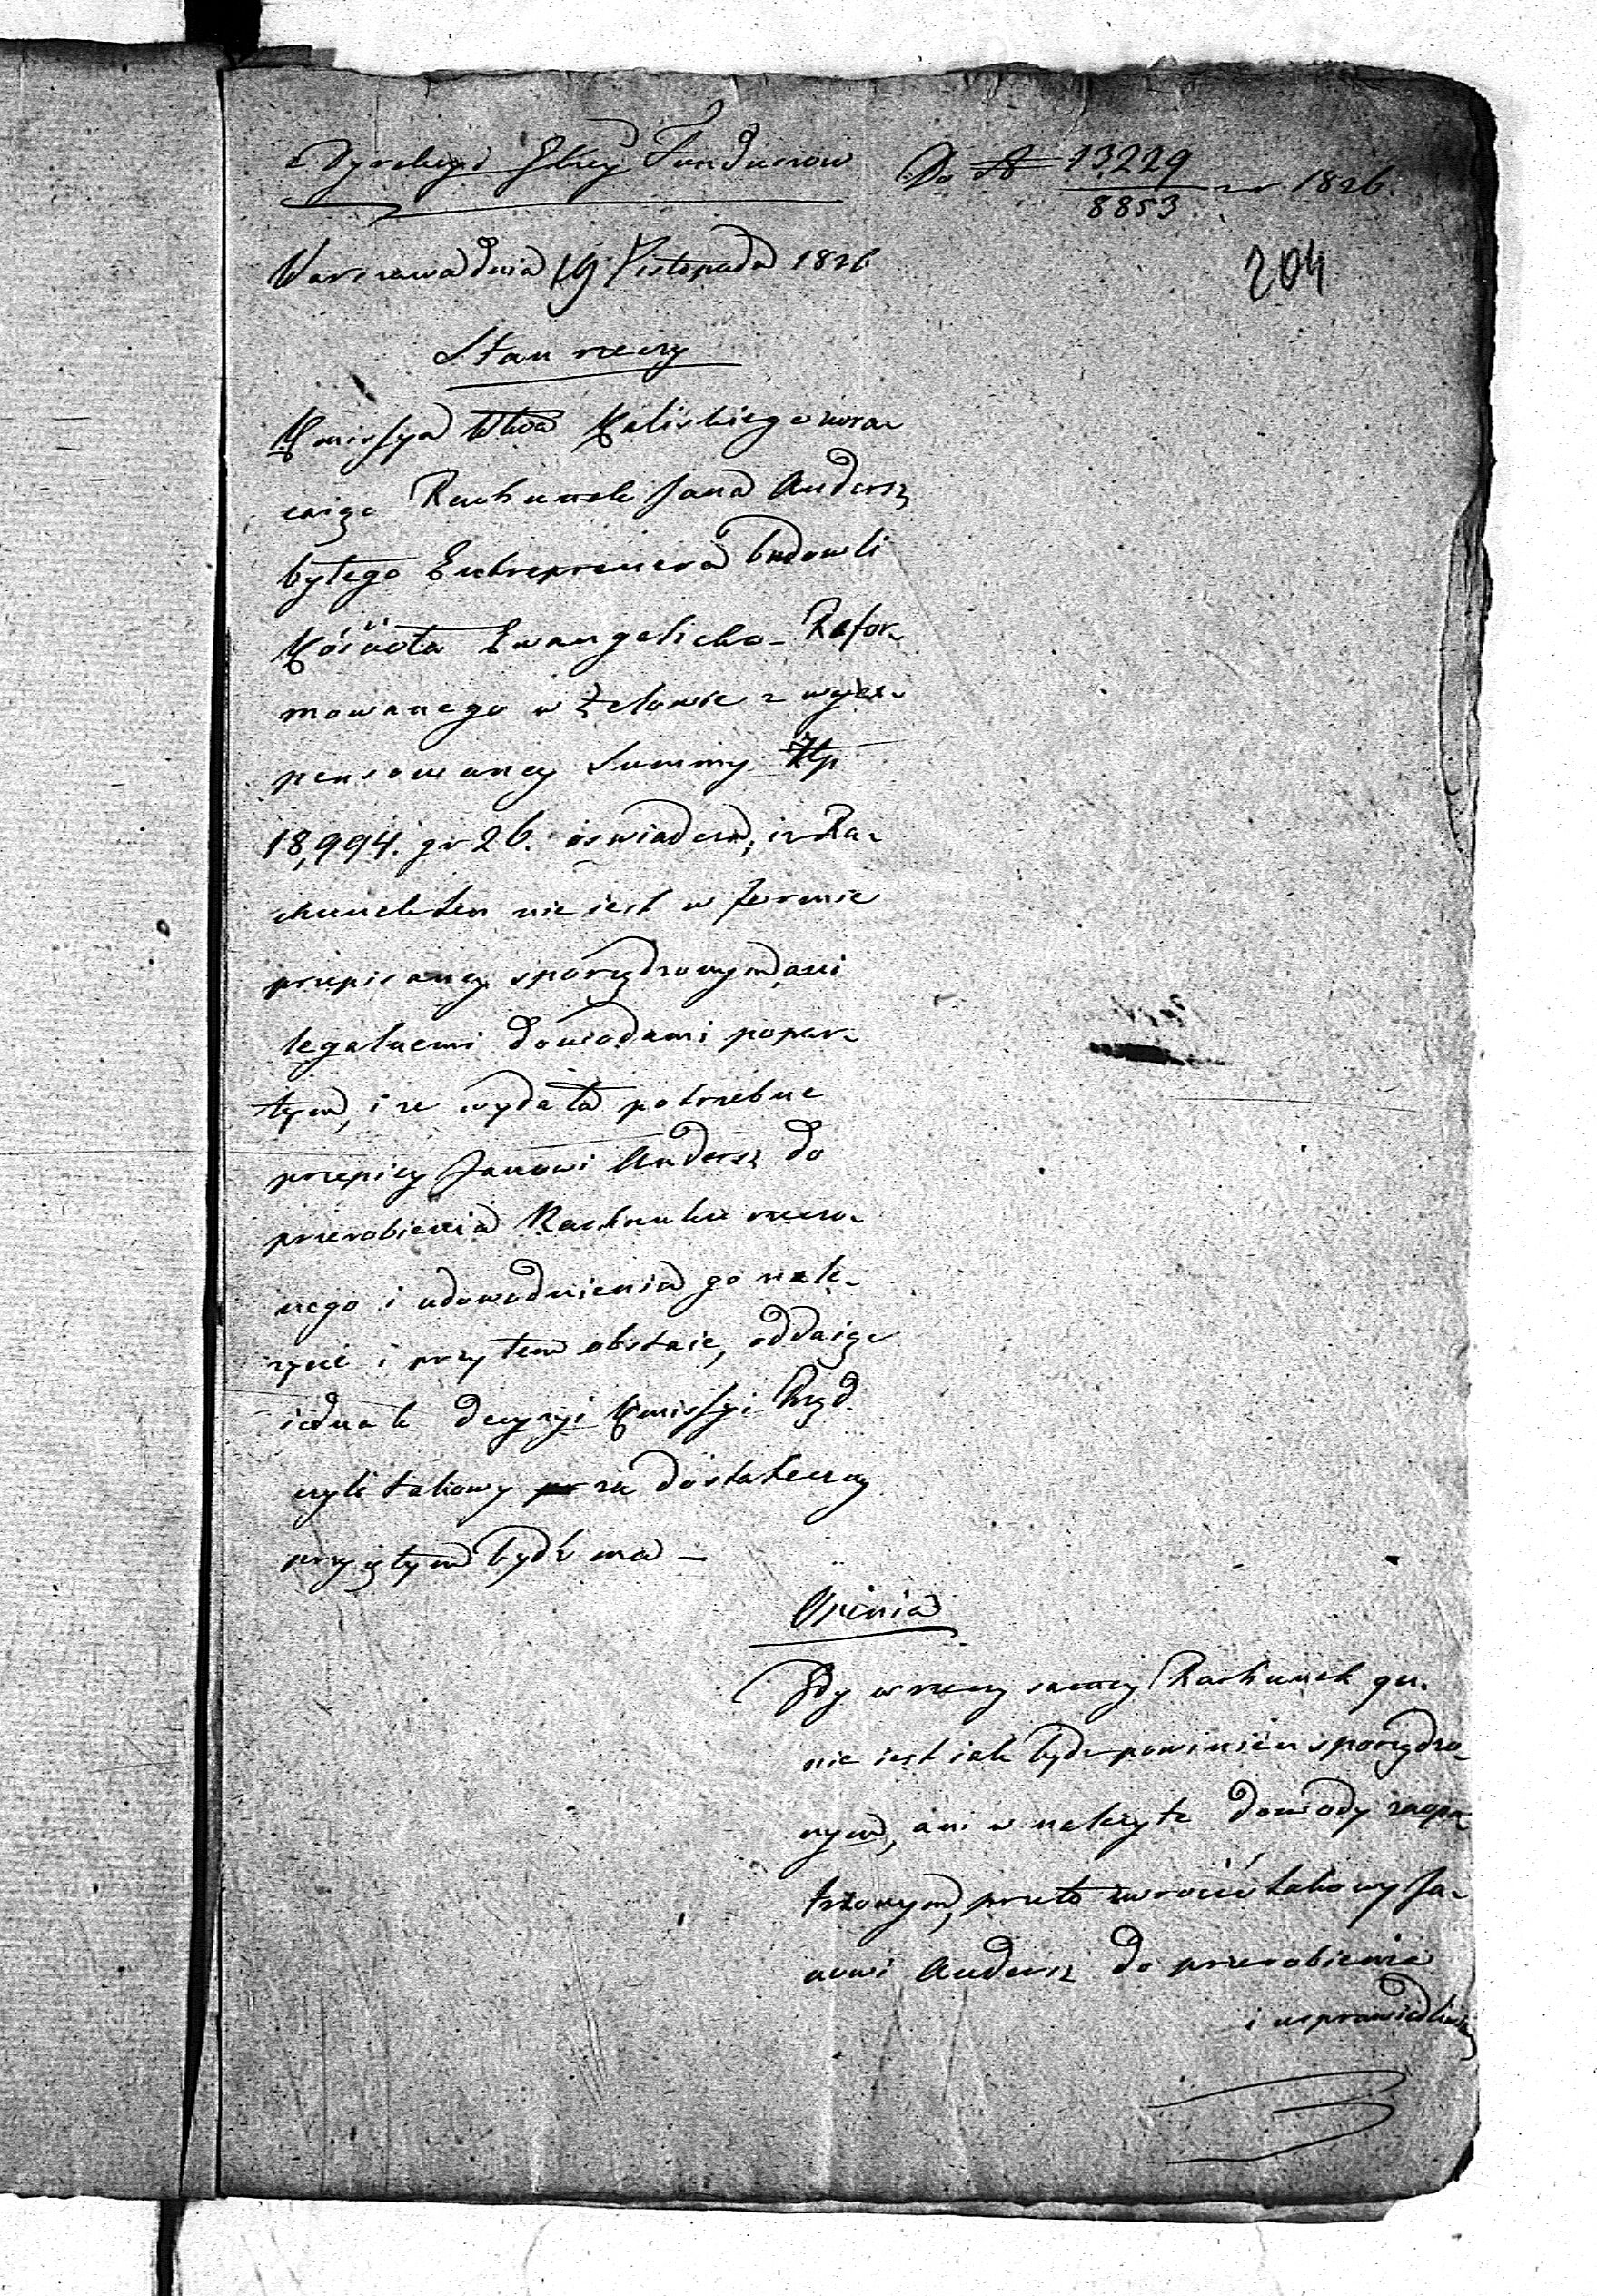 z Dyrekcyi Funduszow
Do № 13,229 / 8853 zr 1826.
204
Warszawa dnia 19 Listopada 1826
Stan rzeczy
Kommissya Wttwa Kaliskiego zwra-
caiąc Rachunek Jana Andersz
byłego Entreprenera budowli
Kościoła Ewangelicko-Refor-
mowanego w Zelowie z wyex-
pensowaney Summy Złp
18,994. gr 26. oświadcza, iż Ra-
chunek ten nie iest w formie
przepisaney sporządzonym ani
legalnemi dowodami popar-
tym, i że wydała potrzebne
przepisy Janowi Andersz do
przerobienia Rachunku rzeczo-
nego i udowodnienia go nale-
życie i przy tem obstaie, oddaiąc
iednak decyzyi Kmissyi Rząd.
czyli takowy za dostateczny
przyiętym bydź ma –
Opinia
Gdy w rzeczy samey Rachunek qu.
nie iest iak bydz powinien sporządzo-
nym, ani w należyte dowody zaopa-
trzonym, przeto zwrócić takowy Ja-
nowi Andersz do przerobienia
i usprawiedliwie